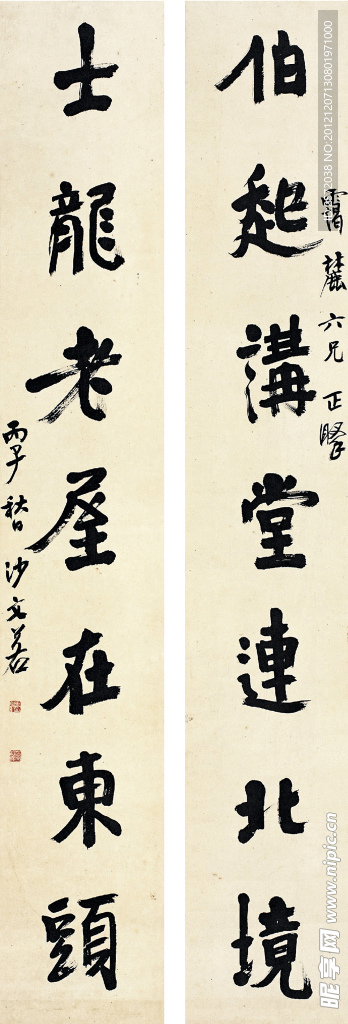 伯起講堂連北境
霄麓六兄 正
士龍老屋在東頭
丙子秋日 沙文若
NO:20121207130801971000
昵享网 www.nipic.cn